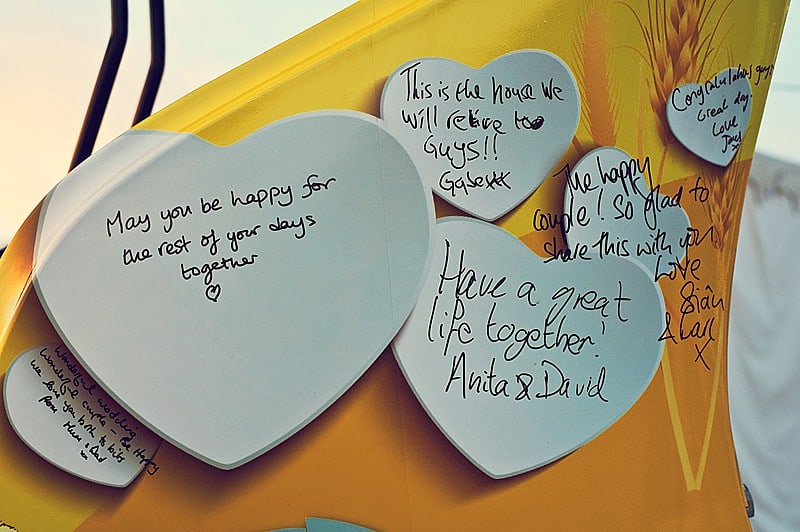 May you be happy for
the rest of your days
together
This is the house we
will retire to
Guys!!
Congratulations guys
Great day.
Love
The happy
couple! So glad to
share this with you.
Love
Siân
&
X
Have a great
life together!
Anita & David
Wonderful wedding
Wonderful couple - Be Happy
We love you both to bits
from Mum & Dad